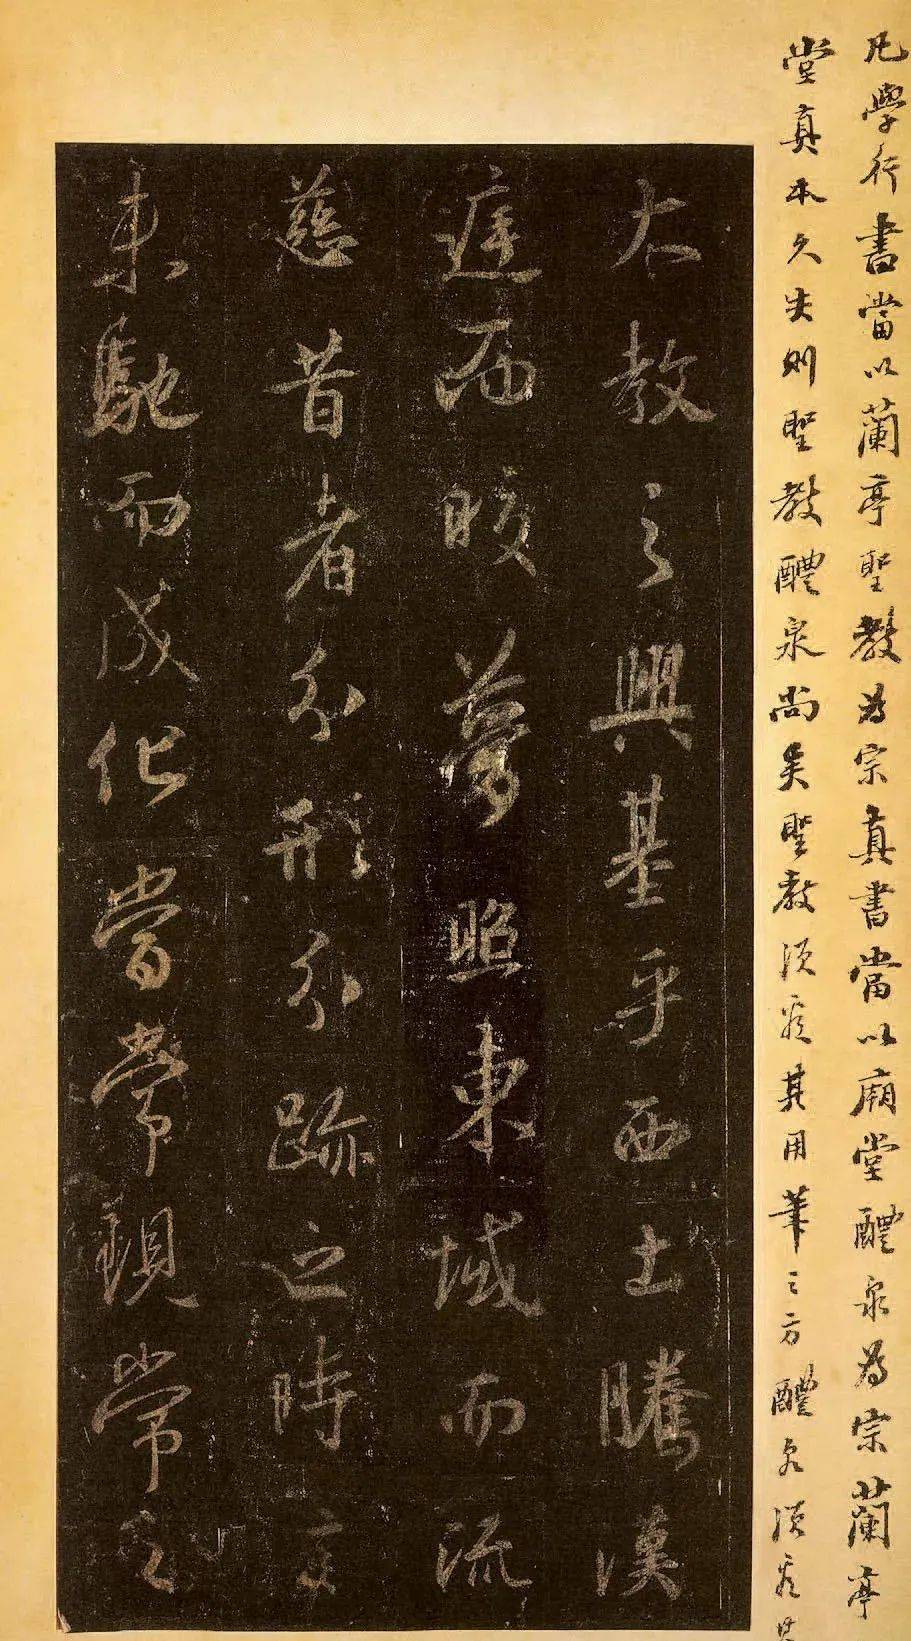 凡學行書當以蘭亭聖教為宗真書當以廟堂醴泉為宗蘭亭
堂真本久失則聖教醴泉尚矣聖教須其用筆之方醴泉須
大教之興基乎西土騰漢
庭而皎夢照東域而流
慈昔者分形分跡之時言
未馳而成化當常現常之